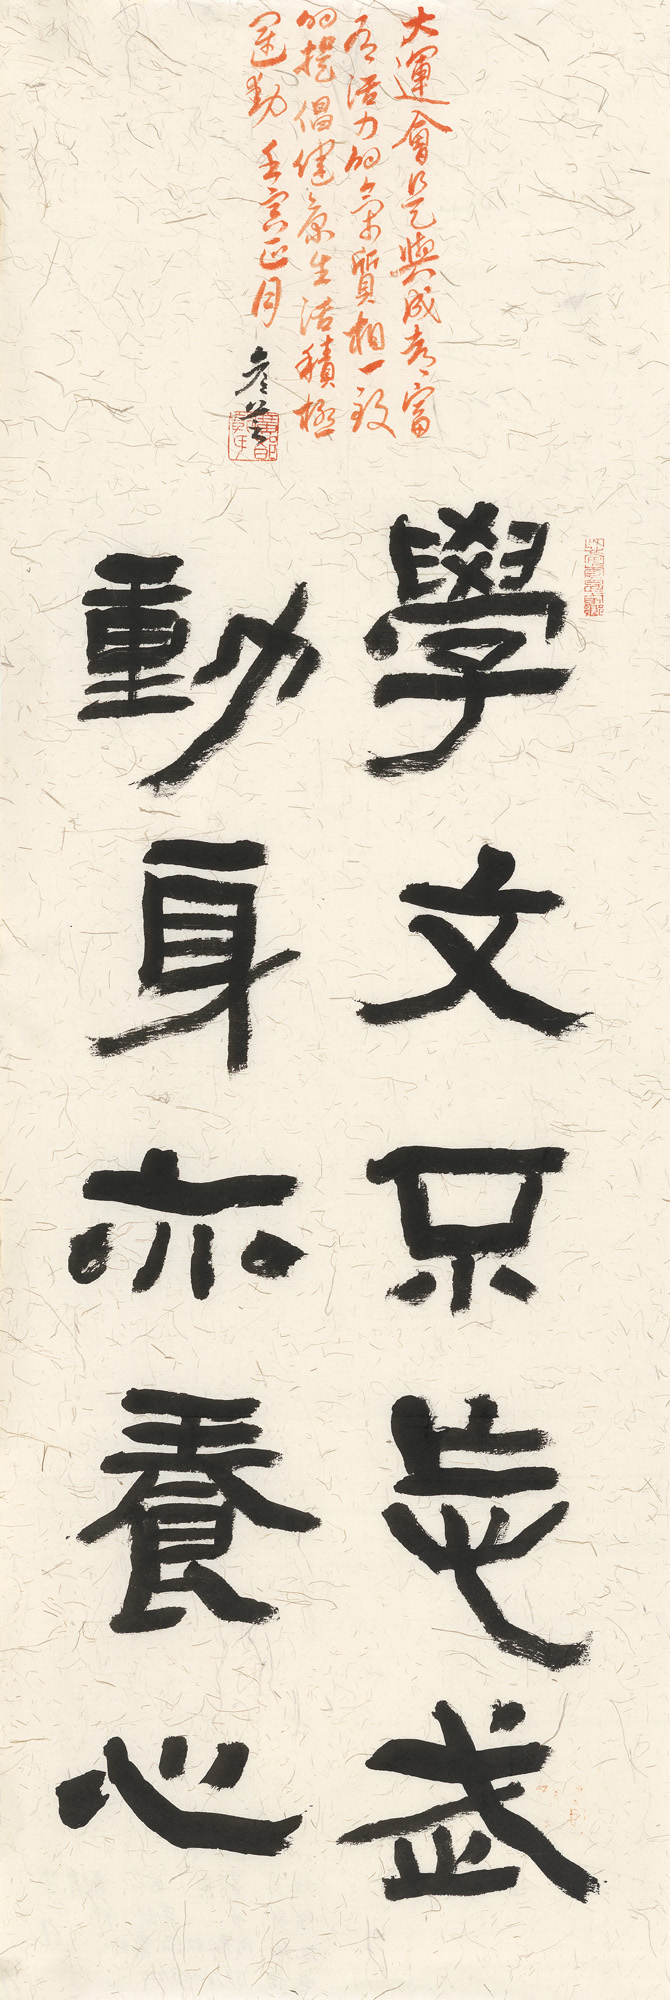 大運會是與成都富
有活力的氣質相一致
的提倡健康生活積極
運動 壬寅正月
學文不忘武
動身亦養心